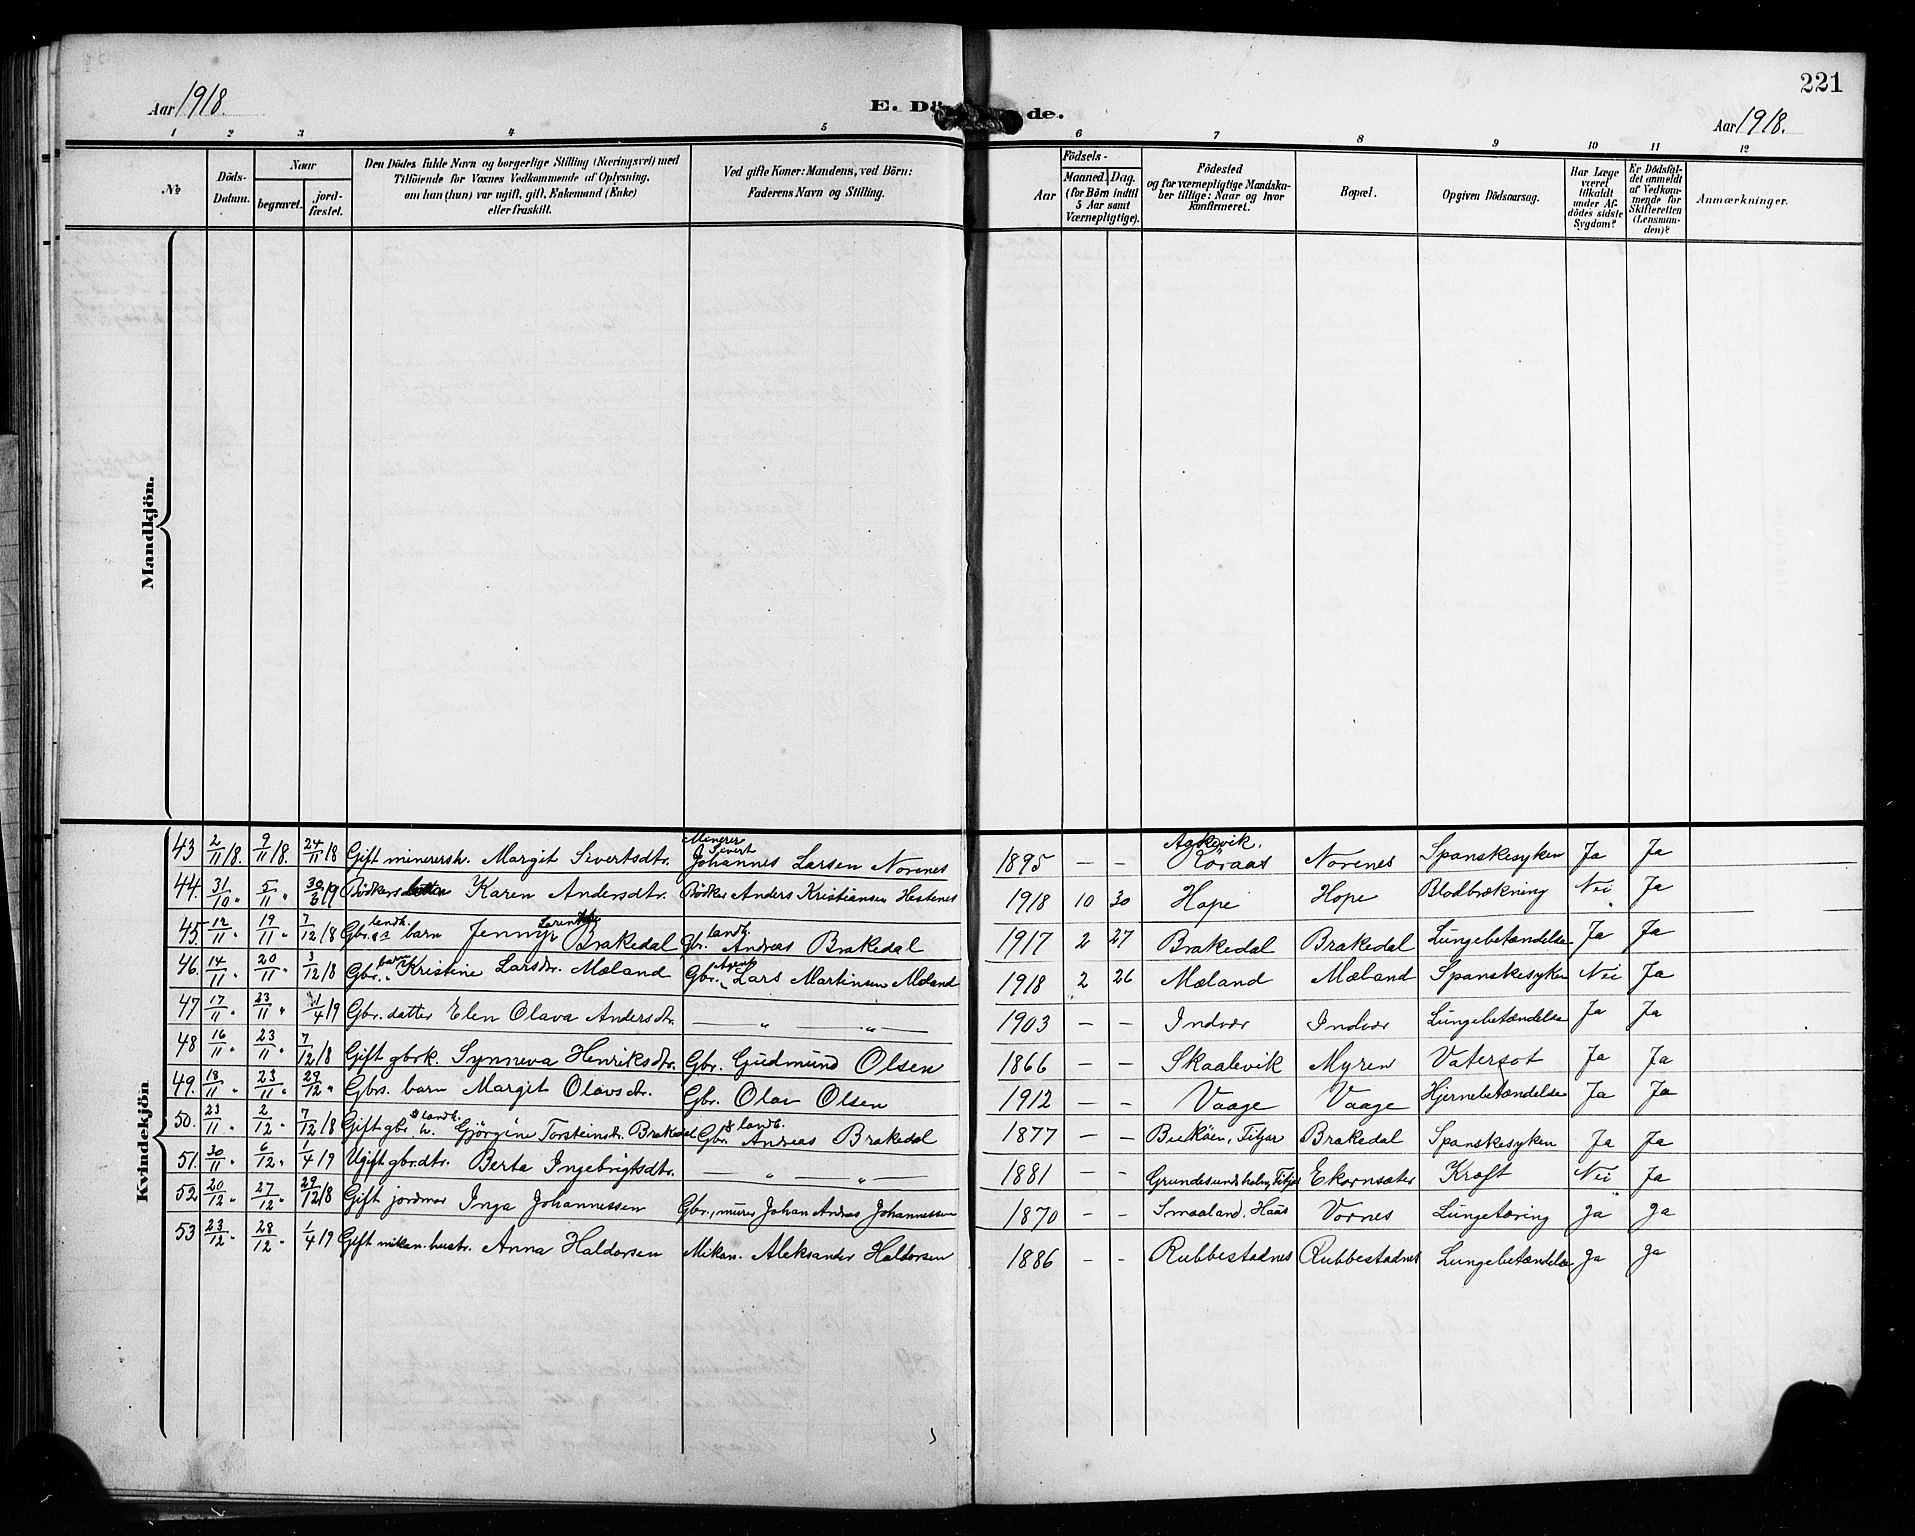 221
Aar 1918.
E. Dö de.
Aar 1918.
1 2 3 4 5 6 7 8 9 10 11 12
No
Döds-Datum.
Naar
begravet.
jord-fæstet.
Den Dödes fulde Navn og borgerlige Stilling (Næringsvei) med
Tilföiende for Voxnes Vedkommende af Oplysning,
om han (hun) var ugift, gift, Enkemand (Enke)
eller fraskilt.
Ved gifte Koner: Mandens, ved Börn:
Faderens Navn og Stilling.
Födsels-
Aar
Maaned. Dag.
(for Börn indtil
5 Aar samt
Værnepligtige).
Födested
og for værnepligtige Mandska-
ber tillige: Naar og hvor
konfirmeret.
Bopæl.
Opgiven Dödsaarsag.
Har Læge
været
tilkaldt
under Af-
dödes sidste
Sygdom?
Er Dödsfal-
det anmeldt
af Vedkom-
mende for
Skifteretten
(Lensman-
den)?
Anmærkninger.
Mandkjön.
Kvindekjön
43 2/11 18. 9/11 18. 24/11 18 Gift minerersh. Margit Sivertsdtr. Minerer Sivert Johannes Larsen Norenes 1895 – – Agkevik. Koraas Norenes Spanskesyken Ja Ja
44. 31/10 " 5/11 " 30/3 19 Bødkers Karen Andersdtr. Bødker Anders Kristiansen Hestenes 1918 10 30 Hope Hope Blodbrækning Nei Ja
45. 12/11 " 19/11 " 7/12 18 Gbr. landh. barn Jenny Brakedal Gbr. landh. Andreas Brakedal 1917 2 27 Brakedal Brakedal Lungebetændelse Ja Ja
46. 14/11 " 20/11 " 3/12 18 Gbr. barn Kristine Larsdtr. Mæland Gbr. Lars Martinsen Mæland 1918 2 26 Mæland Mæland Spanskesyken Nei Ja
47 17/11 " 23/11 " 1/4 19 Gbr. datter Elen Olava Andersdtr. — " — " — 1903 – – Indvær Indvær Lungebetændelse Ja Ja
48 16/11 " 23/11 " 7/12 18 Gift gbrk. Synneva Henriksdtr. Gbr. Gudmund Olsen 1866 – – Skaalevik Myren Vatersot Ja Ja
49. 18/11 " 23/11 " 29/12 " Gbrs. barn Margit Olavsdtr. Gbr. Olav Olsen 1912 – – Vaage Vaage Hjernebetændelse Ja Ja
50. 23/11 " 2/12 " 7/12 18 Gift gbr. & landh. h. Gjørgine Torsteinsdtr. Brakedal Gbr. & landh. Andreas Brakedal 1877 – – Bukøen, Fitjar Brakedal Spanskesyken Ja Ja
51. 30/11 " 6/12 " 1/4 19 Ugift gbr.dtr. Berta Ingebrigtsdtr. — " — " — 1881 – – Grundesundholm, Fitjar Ekornsæter Kræft Nei Ja
52. 20/12 " 27/12 " 29/12 18 Gift jordmor Inga Johannessen Gbr., murer Johan Andreas Johannessen 1870 – – Smaaland, Haus Vornes Lungetæring Ja Ja
53 23/12 " 28/12 " 1/4 19 Gift mikan. hustr. Anna Haldorsen Mikan. Aleksander Haldorsen 1886 – – Rubbestadnes Rubbestadnes Lungebetændelse Ja Ja